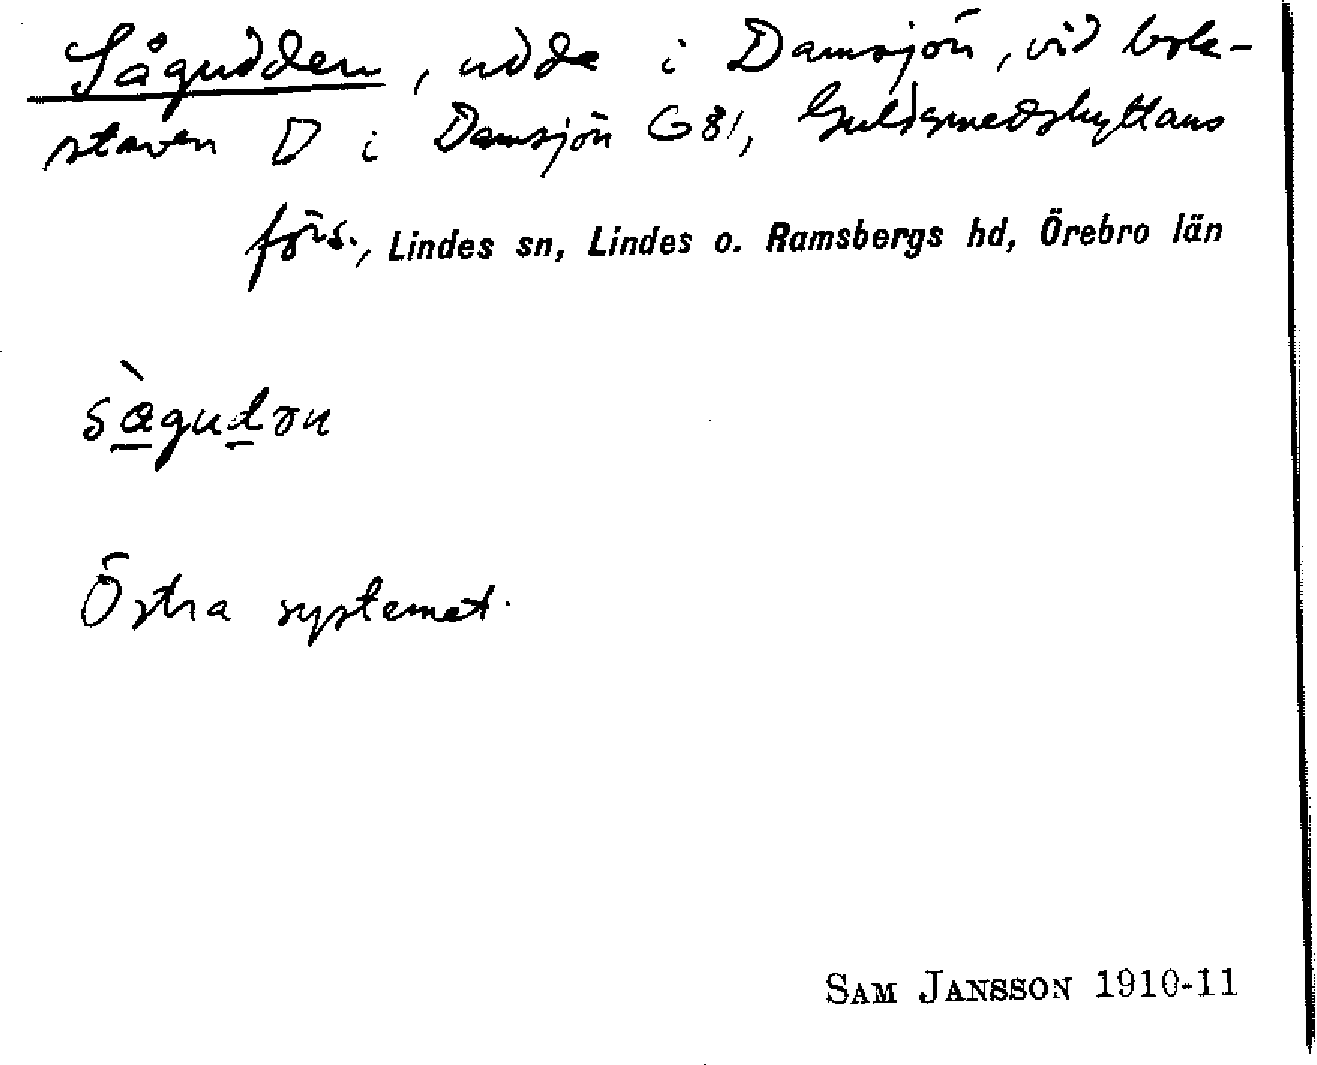 Sågudden, udde i Damsjön, vid bok-
staven D i Damsjön G 81, Guldsmedshyttans
förs., Lindes sn, Lindes o. Ramsbergs hd, Örebro län
sàgudən
Östra systemet.
SAM JANSSON 1910-11